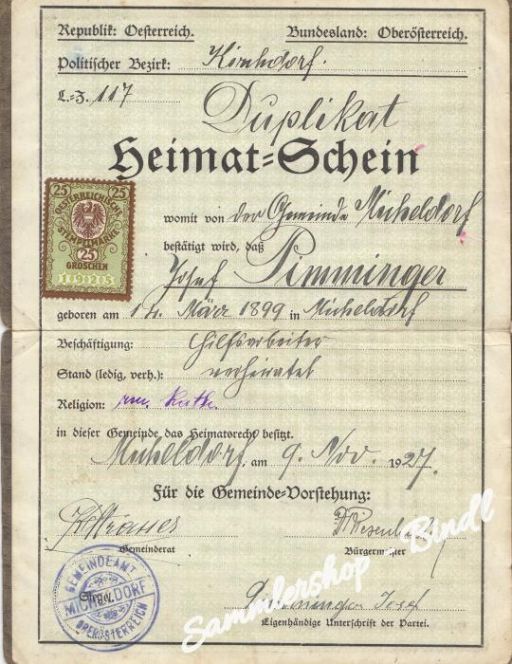 Republik: Oesterreich. Bundesland: Oberösterreich.
Politischer Bezirk: Kirchdorf.
E.-Z. 117
Duplikat
Heimat=Schein
25 25
ÖSTERREICHISCHE
STEMPELMARKE
25
GROSCHEN
1925
womit von der Gemeinde Micheldorf
bestätigt wird, daß
Josef Pimminger
geboren am 12. März 1899 in Micheldorf
Beschäftigung: Hilfsarbeiter
Stand (ledig, verh.): verheiratet
Religion: röm. Kath.
in dieser Gemeinde das Heimatsrecht besitzt.
Micheldorf, am 9. Nov. 1927.
Für die Gemeinde=Vorstehung:
Gemeinderat Bürgermeister
GEMEINDEAMT
MICHELDORF
OBERÖSTERREICH
Siegel.
Pimminger Josef
Eigenhändige Unterschrift der Partei.
Sammlershop - Bindl